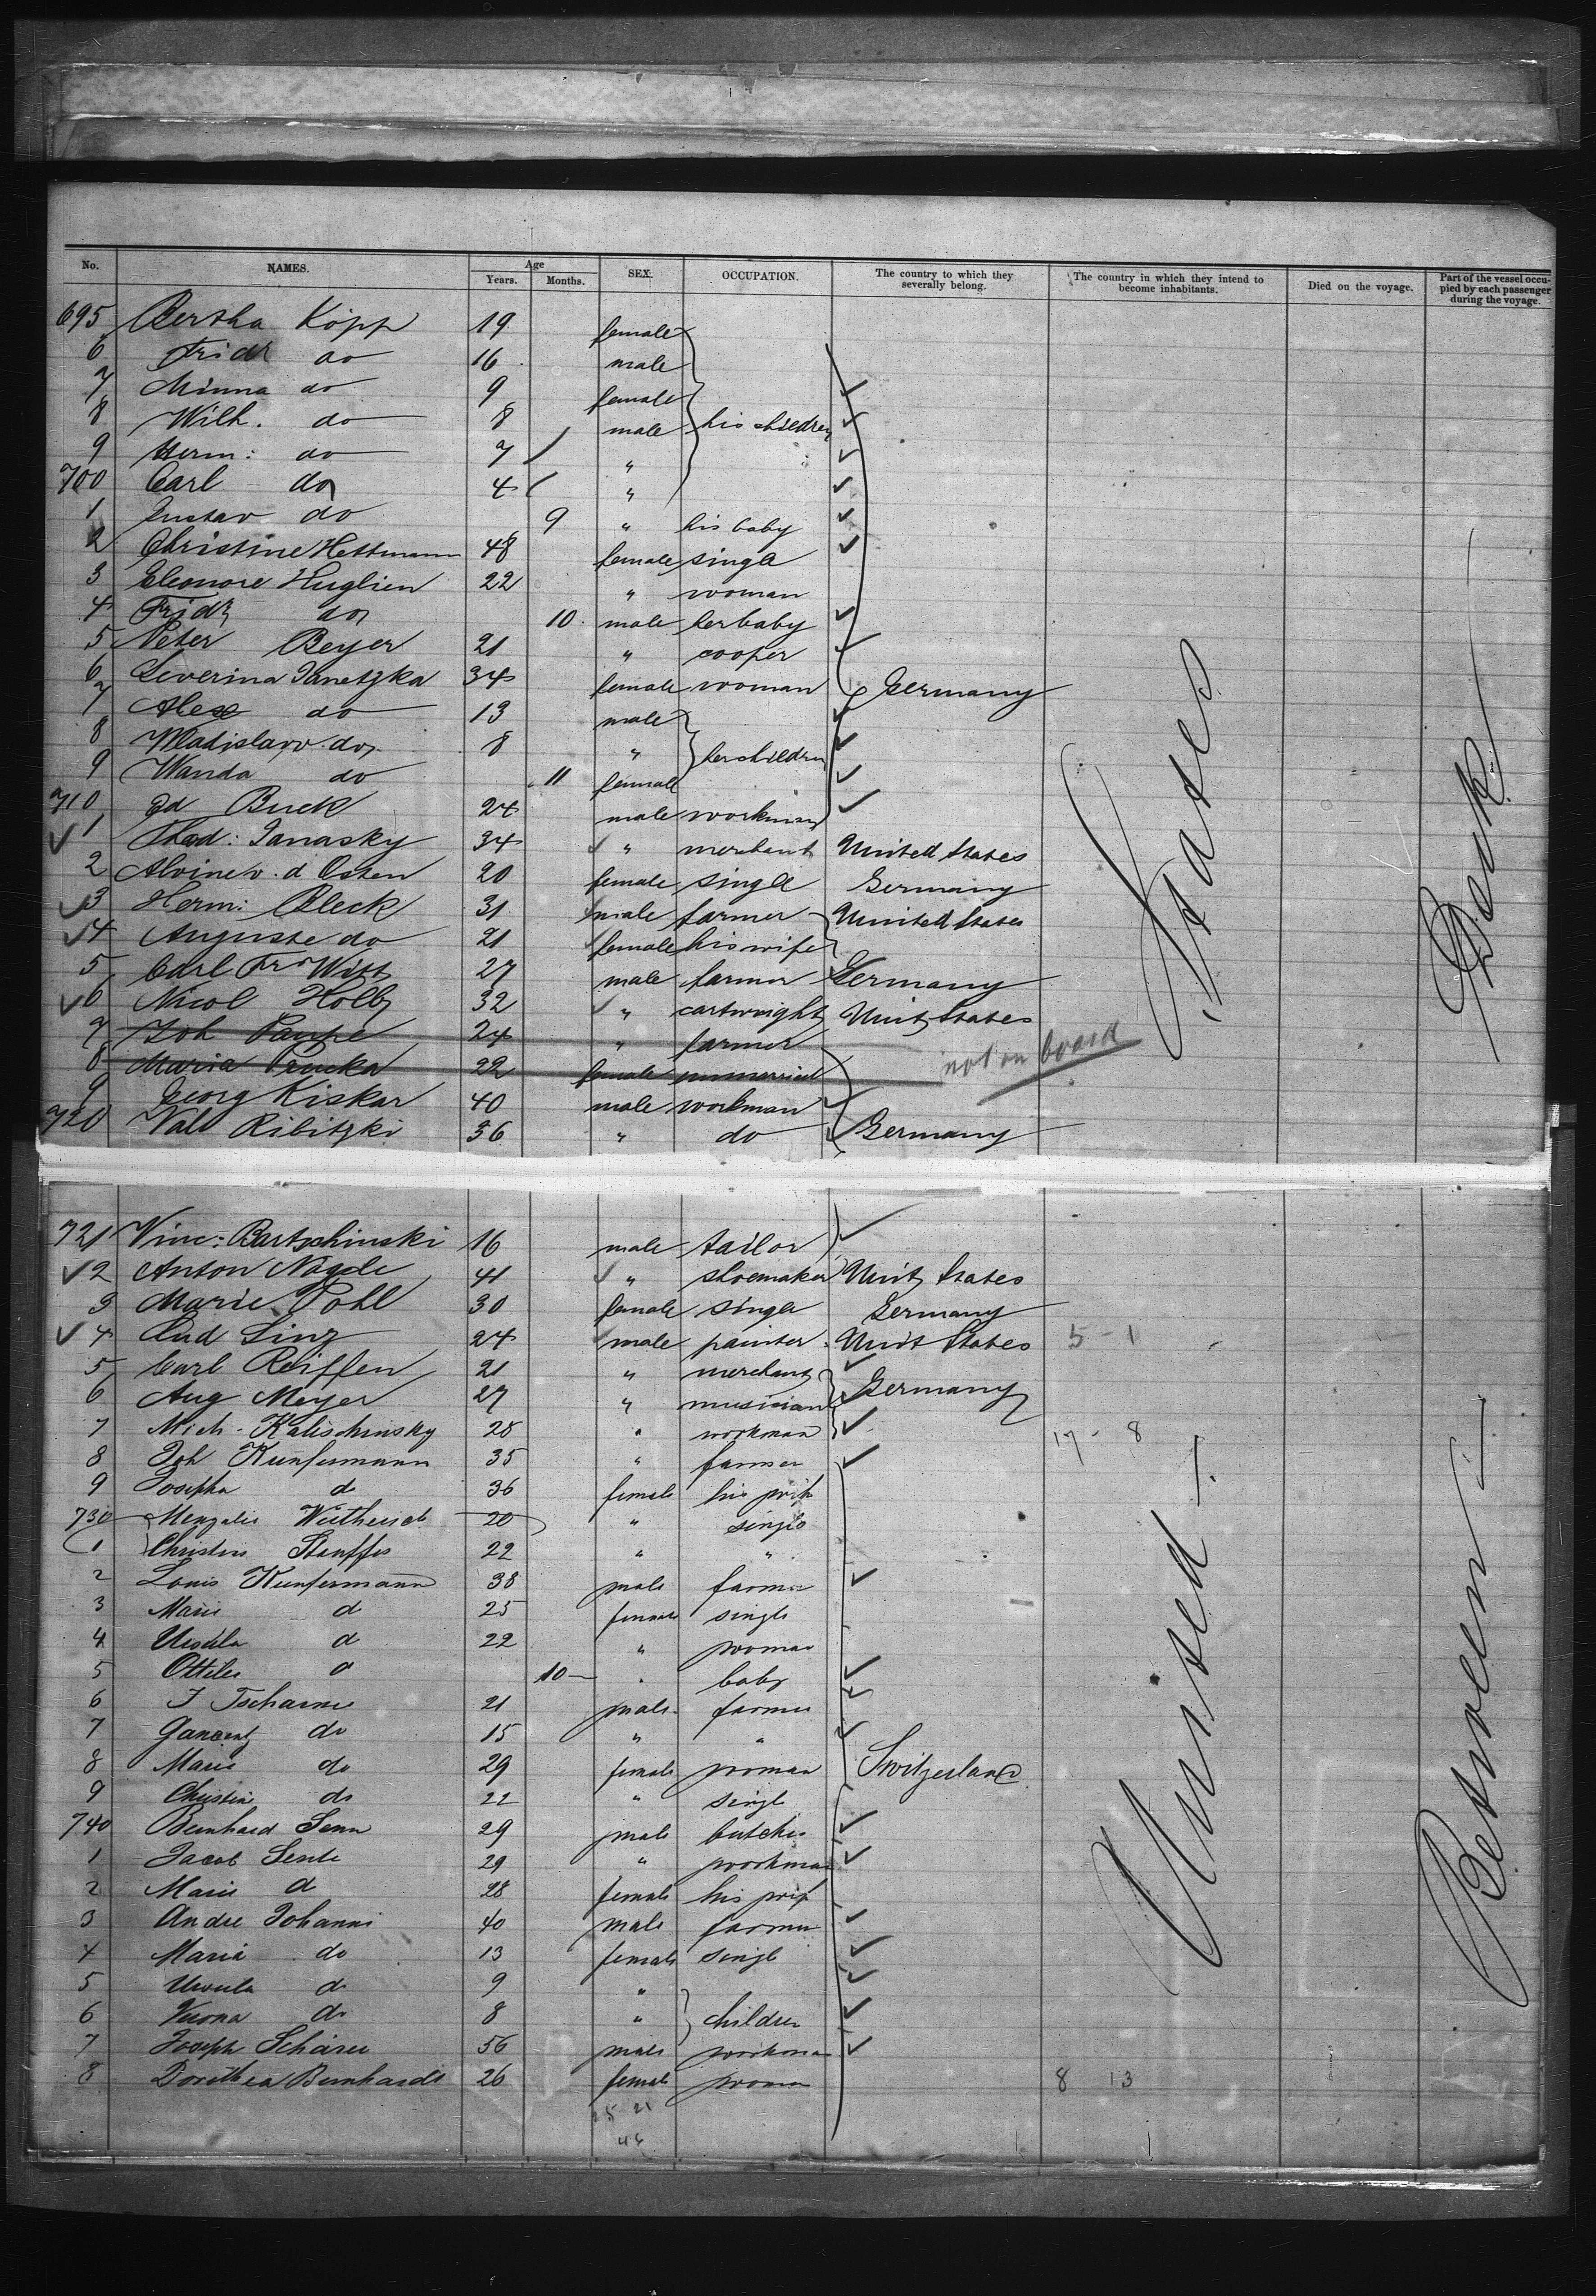 No. NAMES. Age Years. Months. SEX. OCCUPATION. The country to which they severally belong. The country in which they intend to become inhabitants. Died on the voyage. Part of the vessel occupied by each passenger during the voyage.
695 Bertha Köpp 19 female
6 Fridr do 16 male
7 Minna do 9 female
8 Wilh. do 8 male his children
9 Herm: do 7 "
700 Carl do 4 "
1 Gustav do 9 " his baby
2 Christine Hettmann 48 female single
3 Eleonore Huglien 22 " woman
4 Fridr do 10 male her baby
5 Peter Beyer 21 " cooper
6 Severina Janetzka 34 female woman Germany
7 Alex do 13 male
8 Wladislaw do 8 " her children
9 Wanda do 11 female
710 Ed Buck 24 male workman
1 Thod: Janasky 34 " merchant United States
2 Alvine v. d Osten 20 female single Germany
3 Herm: Bleck 31 male farmer United States
4 Auguste do 21 female his wife
5 Carl Fr Witt 27 male farmer Germany
6 Nicol Holly 32 " cartwright Unit States
7 Joh Paupe 24 " farmer
8 Maria Prucka 22 female unmarried not on board
9 Georg Kiskar 40 male workman
720 Val Ribitzki 36 " do Germany
States
Deck
721 Vinc: Bartschinski 16 male tailor
2 Anton Nogde 41 " shoemaker Unit States
3 Marie Pohl 30 female single Germany
4 Rud Linz 24 male painter Unit States 5 - 1
5 Carl Reiffen 21 " merchant
6 Aug Meyer 27 " musician Germany
7 Mich. Kalischinsky 28 " workman 17 - 8
8 Joh Kunfermann 35 " farmer
9 Josepha do 36 female his wife
730 Menzalis Wütherich 20 " single
1 Christine Stauffer 22 " "
2 Louis Kunfermann 38 male farmer
3 Marie d 25 female single
4 Ursula d 22 " woman
5 Ottilie d 10 " baby
6 J Tscharner 21 male farmer
7 do 15 " "
8 Marie do 29 female woman Switzerland
9 Christine do 22 " single
740 Bernhard Senn 29 male butcher
1 Jacob Sente 29 " workman
2 Marie d 28 female his wife
3 Andre Johanni 40 male farmer
4 Maria do 13 female single
5 Ursula d 9 "
6 Verona do 8 " children
7 Joseph Schärer 56 male workman
8 Dorothea Bernhardt 26 female woman 8 13
25 21
46
United
Between